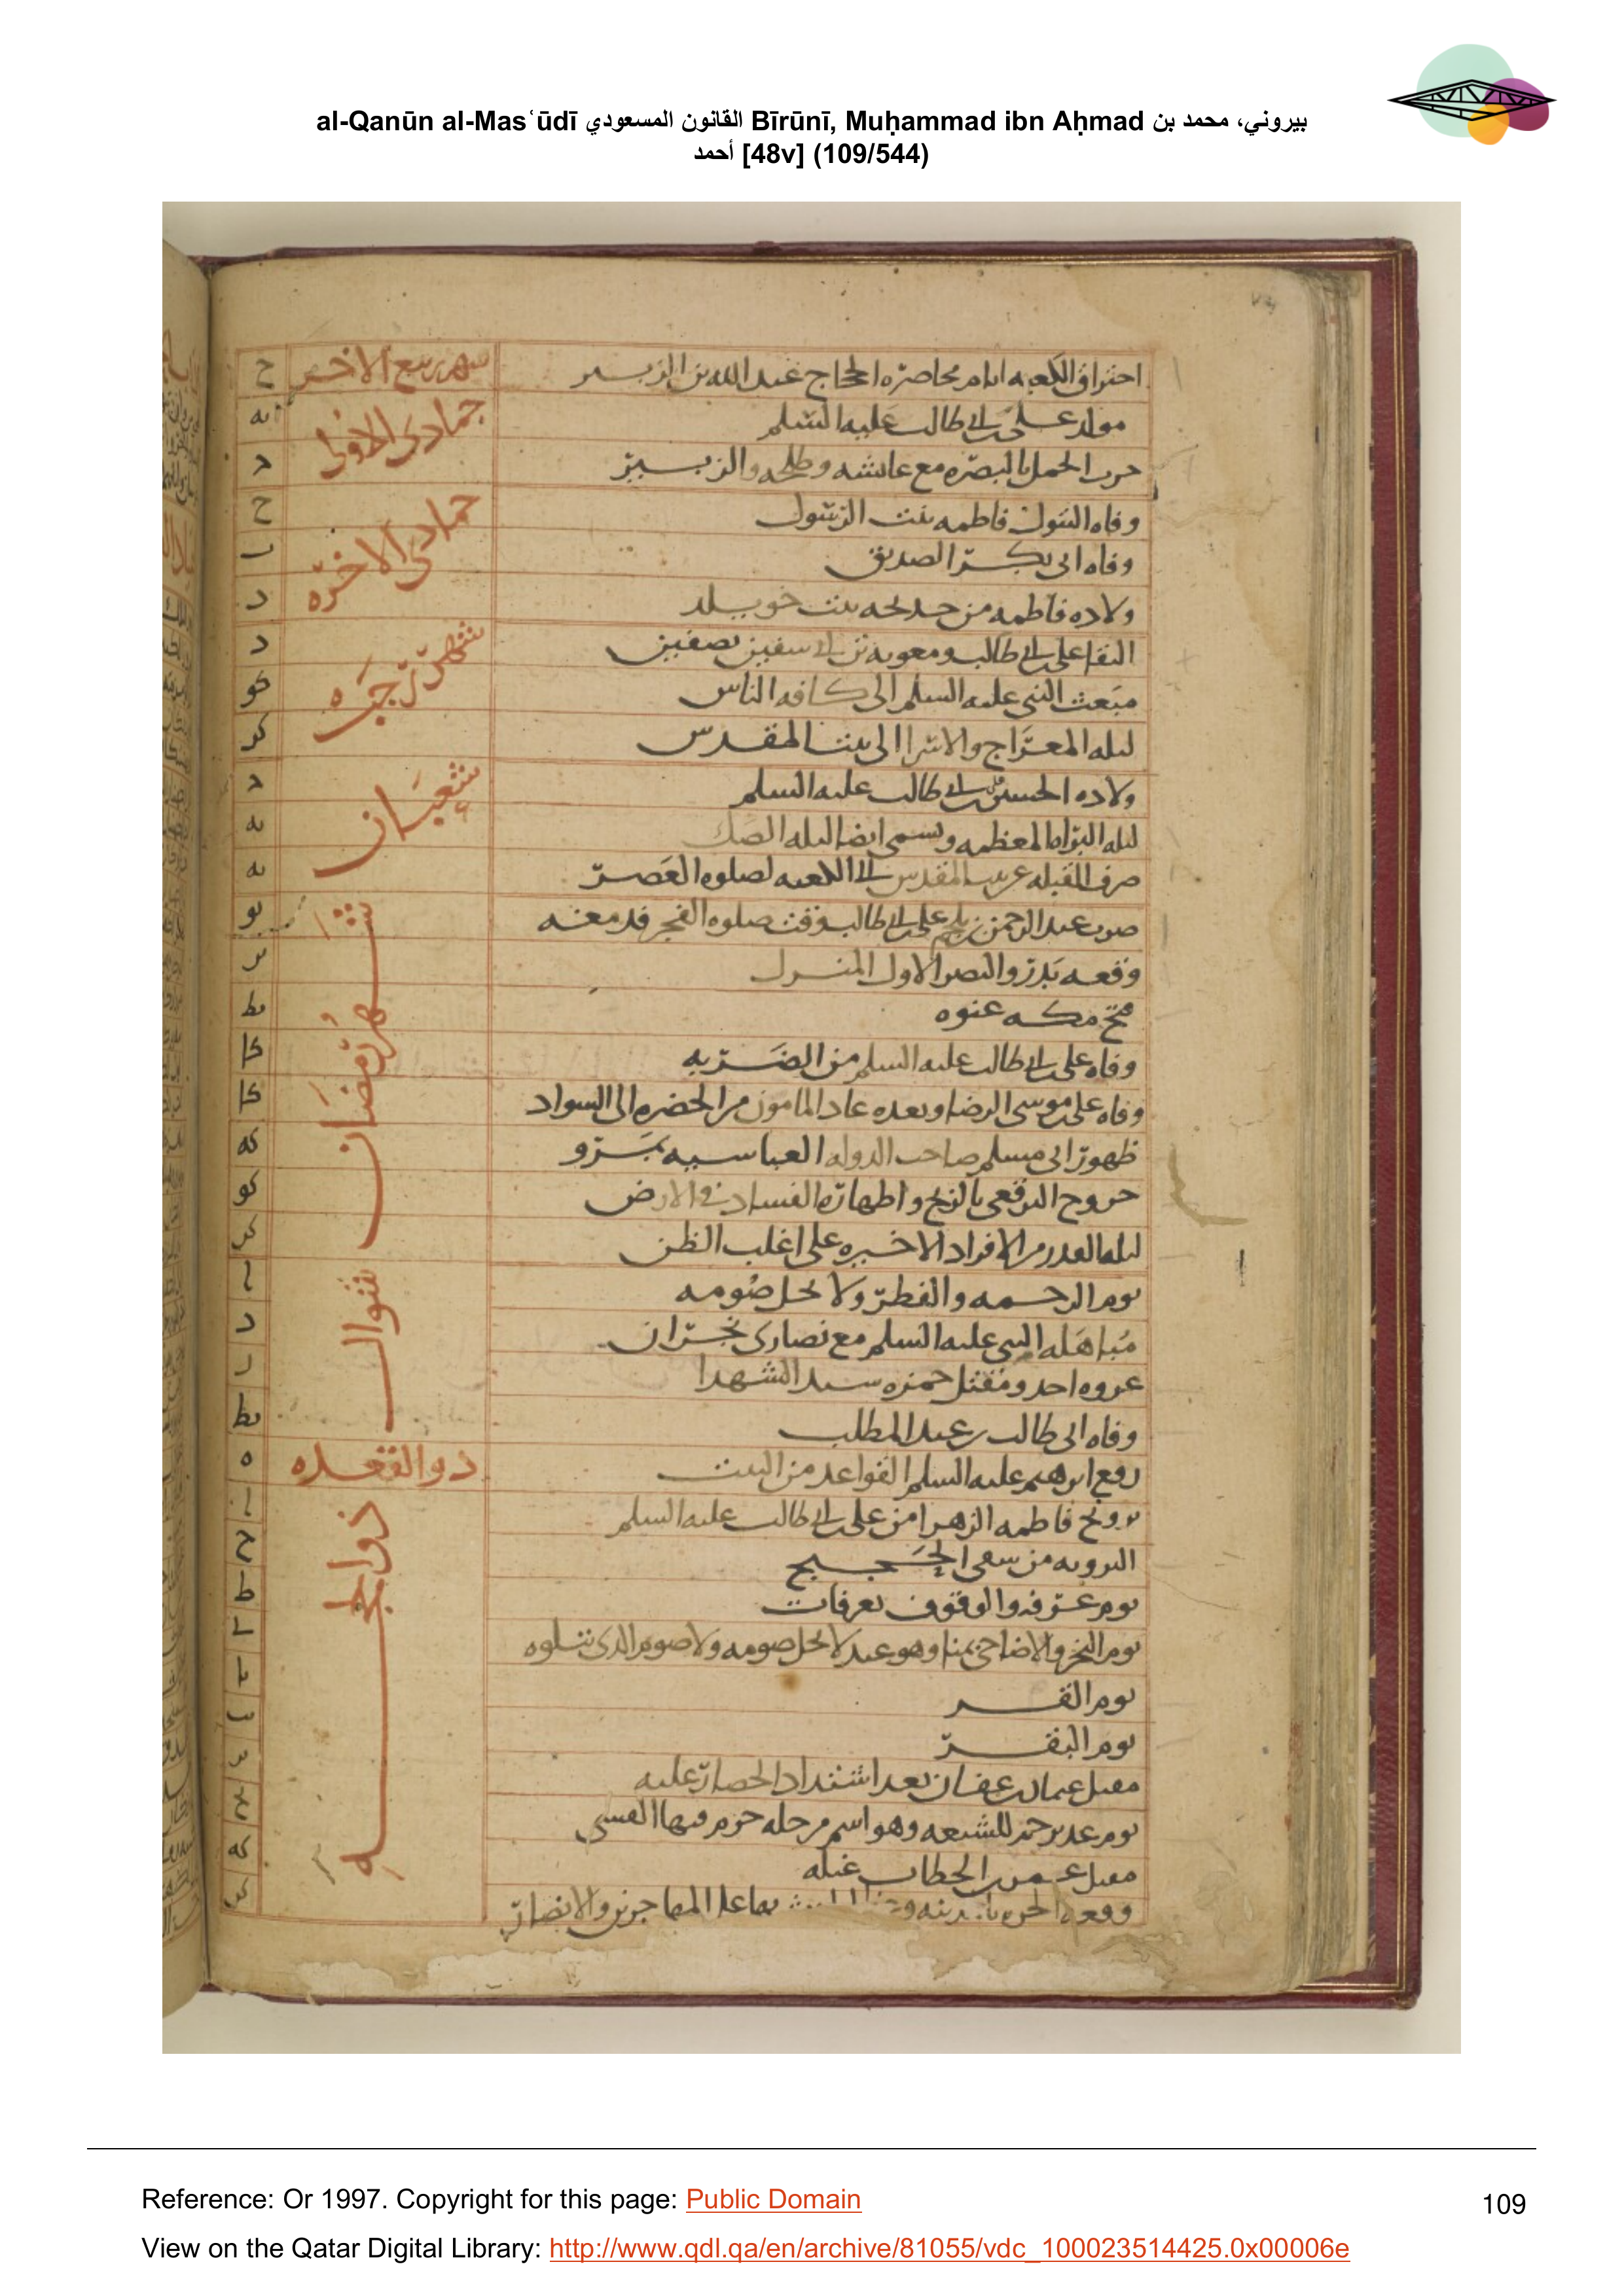 al-Qanūn al-Masʿūdī القانون المسعودي Bīrūnī, Muḥammad ibn Aḥmad بيروني، محمد بن
أحمد [48v] (109/544)
احتراق الكعبه ايام محاصره الحجاج عبد الله بن الزبير شهر ربيع الاخر ح
مولد على بن ابى طالب عليه السلم جمادى الاولى يه
حرب الجمل بالبصره مع عايشه وطلحه والزبير د
وفاه البتول فاطمه بنت الرسول جمادى الاخره ح
وفاه ابى بكر الصديق
ولاده فاطمه من خديجه بنت خويلد د
التقا على بن ابى طالب ومعويه بن ابى سفين بصفين شهر رجب د
مبعث النبى عليه السلم الى كافه الناس كو
ليله المعراج والاسرا الى بيت المقدس كز
ولاده الحسين بن على بن ابى طالب عليه السلم شعبان د
ليله البراه المعظمه وتسمى ايضا ليله الصك يه
صرف القبله عن بيت المقدس الى الكعبه لصلوه العصر يه
ضرب عبد الرحمن بن ملجم على بن ابى طالب وقت صلوه الفجر شهر رمضان يو
وقعه بدر والنصر الاول المنزل يز
فتح مكه عنوه يط
وفاه على بن ابى طالب عليه السلم من الضربه كا
وفاه على بن موسى الرضا وبعده عاد المامون من الخضره الى السواد كا
ظهور ابى مسلم صاحب الدوله العباسيه بمرو كه
خروج البرقعى بالزنج واظهاره الفساد فى الارض كو
ليله القدر من الافراد الاخيره على اغلب الظن كز
يوم الرحمه والفطر ولا يحل صومه شوال ا
مباهله النبى عليه السلم مع نصارى نجران د
غزوه احد ومقتل حمزه سيد الشهدا
وفاه ابى طالب بن عبد المطلب يط
رفع ابرهيم عليه السلم القواعد من البيت ذو القعده ه
تزويج فاطمه الزهرا من على بن ابى طالب عليه السلم ذو الحجه ا
الترويه من سعى الحجيج ح
يوم عرفه والوقوف بعرفات ط
يوم النحر والاضاحى بمنا وهو عيد لا يحل صومه ولا صوم الذى يتلوه ى
يوم القر يا
يوم النفر يب
مقتل عثمان بن عفان بعد اشتداد الحصار عليه
يوم غدير خم للشيعه وهو اسم مرحله يح
مقتل عمر بن الخطاب غيله كه
وقعه الحره بالمدينه المهاجرين والانصار كز
Reference: Or 1997. Copyright for this page: Public Domain
109
View on the Qatar Digital Library: http://www.qdl.qa/en/archive/81055/vdc_100023514425.0x00006e